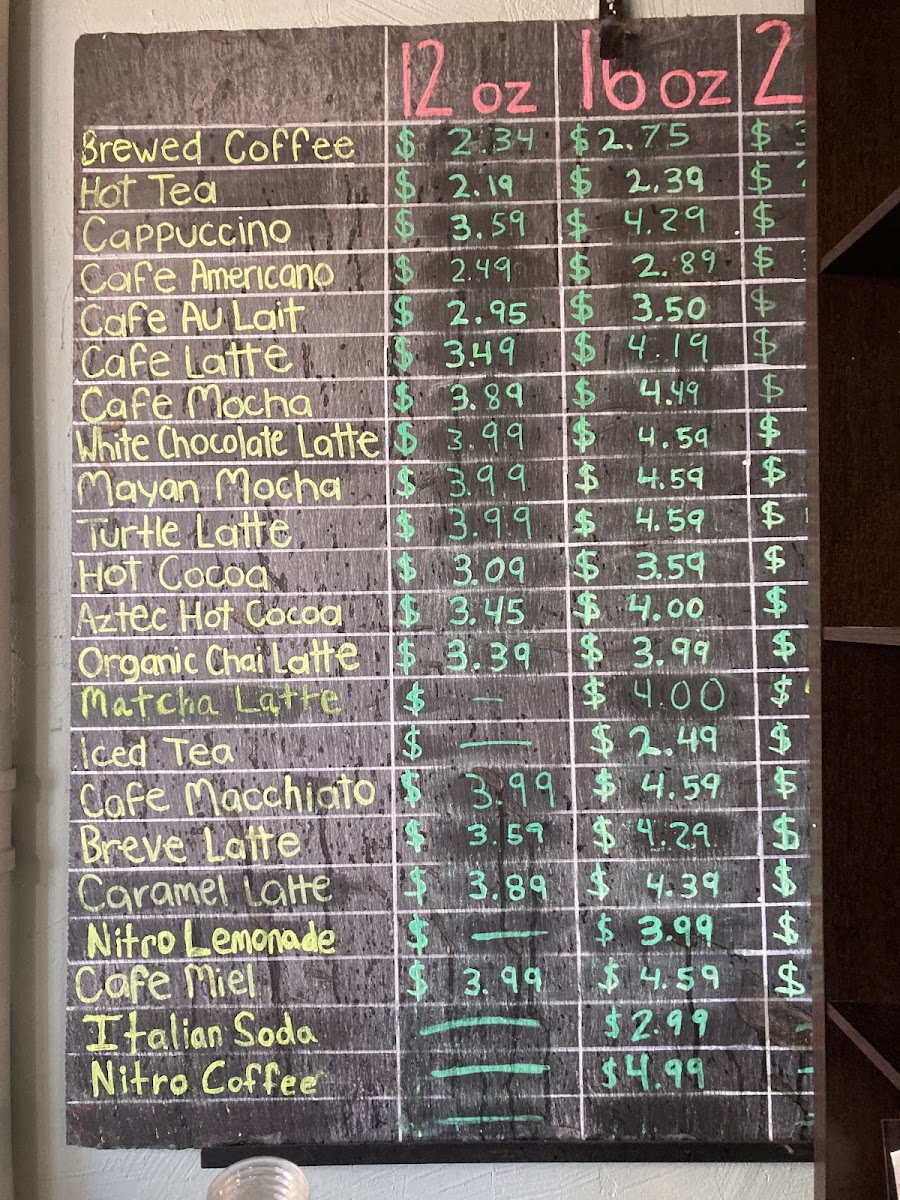 12 oz 16 oz 2
Brewed Coffee $ 2.34 $ 2.75 $ 3
Hot Tea $ 2.19 $ 2.39 $
Cappuccino $ 3.59 $ 4.29 $
Cafe Americano $ 2.49 $ 2.89 $
Cafe Au Lait $ 2.95 $ 3.50 $
Cafe Latte $ 3.49 $ 4.19 $
Cafe Mocha $ 3.89 $ 4.49 $
White Chocolate Latte $ 3.99 $ 4.59 $
Mayan Mocha $ 3.99 $ 4.59 $
Turtle Latte $ 3.99 $ 4.59 $
Hot Cocoa $ 3.09 $ 3.59 $
Aztec Hot Cocoa $ 3.45 $ 4.00 $
Organic Chai Latte $ 3.39 $ 3.99 $
Matcha Latte $ — $ 4.00 $
Iced Tea $ — $ 2.49 $
Cafe Macchiato $ 3.99 $ 4.59 $
Breve Latte $ 3.59 $ 4.29 $
Caramel Latte $ 3.89 $ 4.39 $
Nitro Lemonade $ — $ 3.99 $
Cafe Miel $ 3.99 $ 4.59 $
Italian Soda — $2.99 —
Nitro Coffee — $4.99 —
—